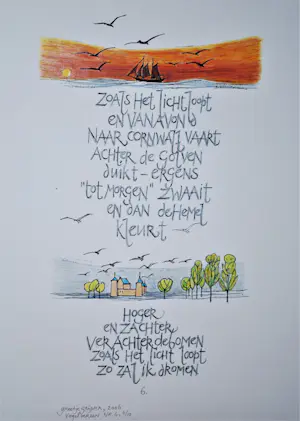 ZOALS HET LICHT LOOPT
EN VANAVOND
NAAR CORNWALL VAART
ACHTER DE GOLVEN
DUIKT - ERGENS
"TOT MORGEN" ZWAAIT
EN DAN DE HEMEL
KLEURT
HOGER
EN ZACHTER
VER ACHTER DE BOMEN
ZOALS HET LICHT LOOPT
ZO ZAL IK DROMEN
6.